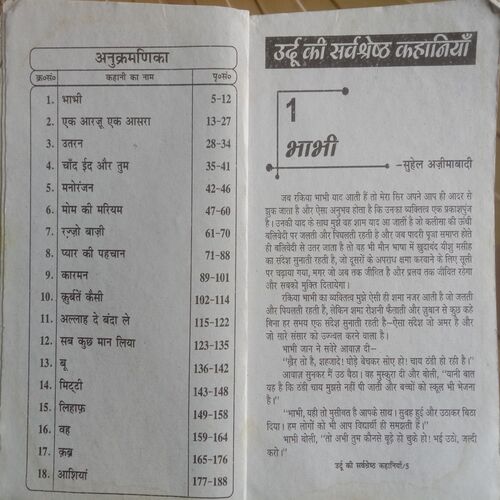 अनुक्रमणिका
क्र०सं० कहानी का नाम पृ०सं०
1. भाभी 5-12
2. एक आरजू एक आसरा 13-27
3. उतरन 28-34
4. चाँद ईद और तुम 35-41
5. मनोरंजन 42-46
6. मोम की मरियम 47-60
7. रज़्ज़ो बाज़ी 61-70
8. प्यार की पहचान 71-88
9. कारमन 89-101
10. कुर्बतें कैसी 102-114
11. अल्लाह दे बंदा ले 115-122
12. सब कुछ मान लिया 123-135
13. बू 136-142
14. मिट्टी 143-148
15. लिहाफ़ 149-158
16. वह 159-164
17. क़ब्र 165-176
18. आशियां 177-188
उर्दू की सर्वश्रेष्ठ कहानियाँ
1
भाभी
–सुहेल अज़ीमाबादी
जब रकिया भाभी याद आती हैं तो मेरा सिर अपने आप ही आदर से
झुक जाता है और ऐसा अनुभव होता है कि उनका व्यक्तित्व एक प्रकाशपुंज
है। उनकी याद के साथ मुझे वह शाम याद आ जाती है जो कलीसा की ऊंची
बलिवेदी पर जलती और पिघलती रहती है और जब पादरी पूजा समाप्त होते
ही बलिवेदी से उतर जाता है तो वह भी मौन भाषा में खुदाबंद यीशु मसीह
का संदेश सुनाती रहती है, जो दूसरों के अपराध क्षमा करवाने के लिए सूली
पर चढ़ाया गया, मगर जो अब तक जीवित है और प्रलय तक जीवित रहेगा
और सबको मुक्ति दिलायेगा।
रकिया भाभी का व्यक्तित्व मुझे ऐसी ही शमा नजर आती है जो जलती
और पिघलती रहती है, लेकिन शमा रोशनी फैताती और ज़ुबान से कुछ कहे
बिना हर समय एक संदेश सुनाती रहती है—ऐसा संदेश जो अमर है और
जो सारे संसार को उज्ज्वल करने वाला है।
भाभी जान ने सवेरे आवाज़ दी—
“ख़ैर तो है, शहजादे! घोड़े बेचकर सोए हो! चाय ठंडी हो रही है।”
आवाज़ सुनकर मैं उठ बैठा। वह मुस्कुरा दी और बोली, “यानी बात
यह है कि ठंडी चाय मुझसे नहीं पी जाती और बच्चों को स्कूल भी भेजना
है।”
“भाभी, यही तो मुसीबत है आपके साथ। सुबह हुई और उठाकर बिठा
दिया। हम लोगों को भी आप विद्यार्थी ही समझती हैं।”
भाभी बोली, “तो अभी तुम कौनसे बूढ़े हो चुके हो! भई उठो, जल्दी
करो।”
उर्दू की सर्वश्रेष्ठ कहानियाँ/5